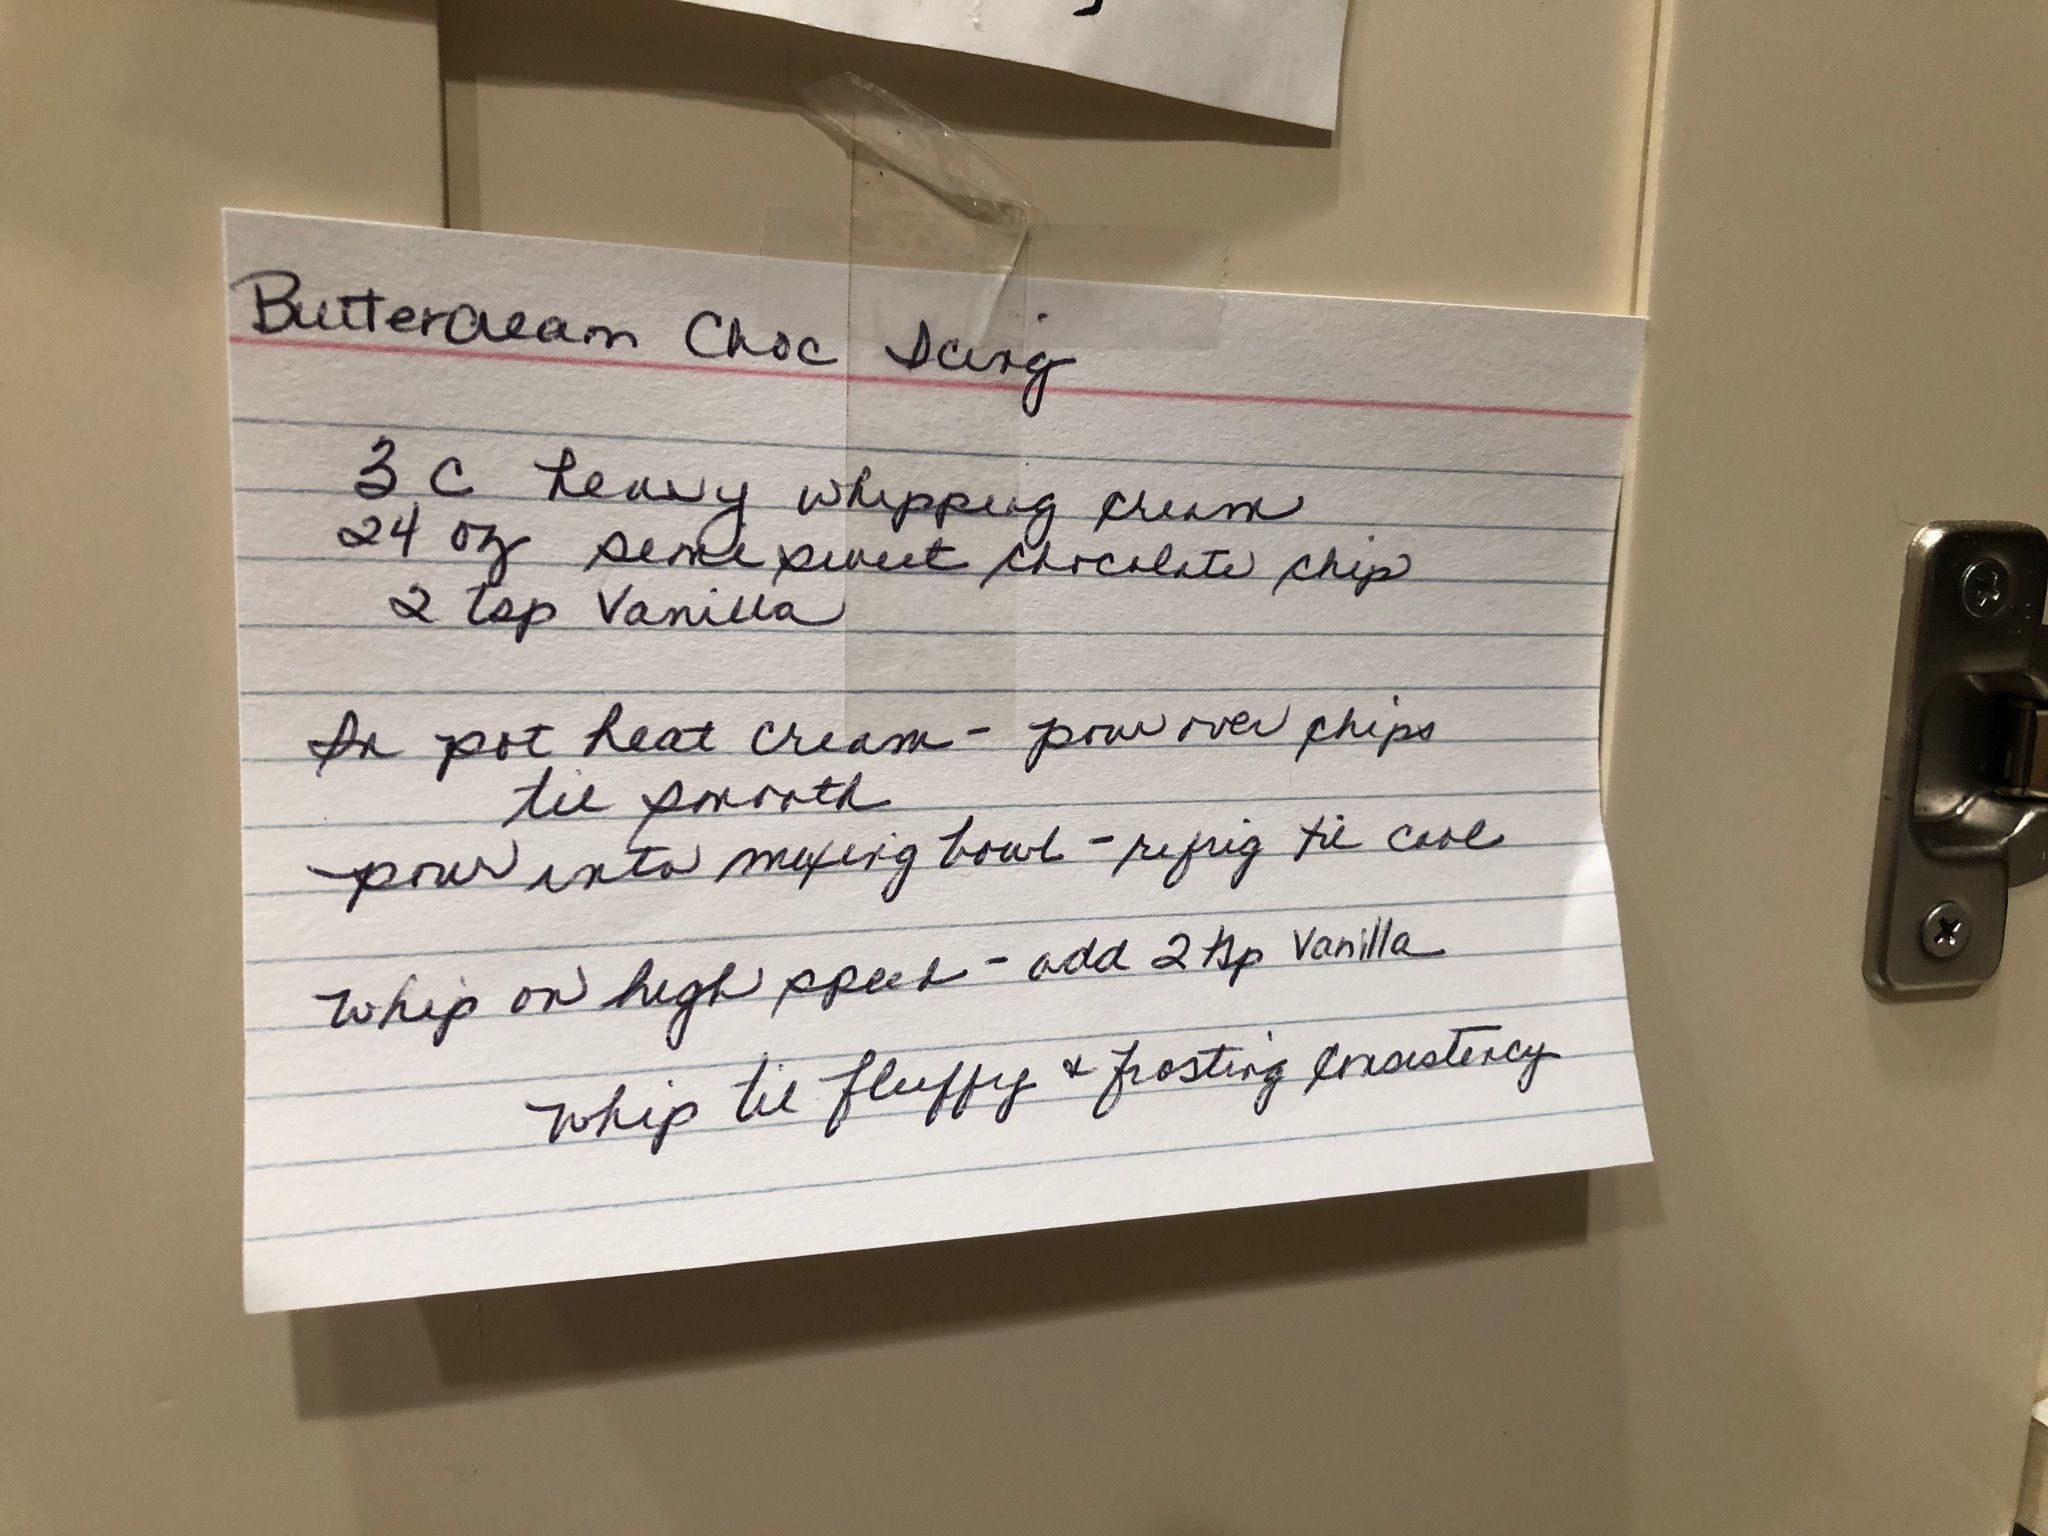 Buttercream Choc Icing
3 C heavy whipping cream
24 oz semi sweet chocolate chip
2 tsp Vanilla
In pot heat cream - pour over chips
til smooth
pour into mixing bowl - refrig til cool
whip on high speed - add 2 tsp Vanilla
whip til fluffy & frosting consistency